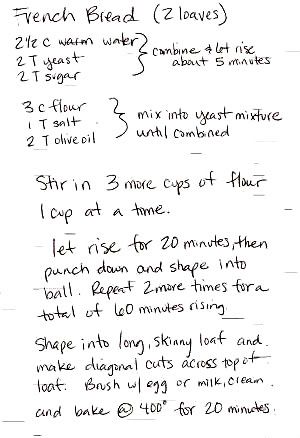 French Bread (2 loaves)
2 1/2 c warm water
2 T yeast
2 T sugar
combine & let rise
about 5 minutes
3 c flour
1 T salt
2 T olive oil
mix into yeast mixture
until combined
Stir in 3 more cups of flour
1 cup at a time.
let rise for 20 minutes, then
punch down and shape into
ball. Repeat 2 more times for a
total of 60 minutes rising.
Shape into long, skinny loaf and
make diagonal cuts across top of
loaf. Brush w/ egg or milk, cream.
and bake @ 400° for 20 minutes.